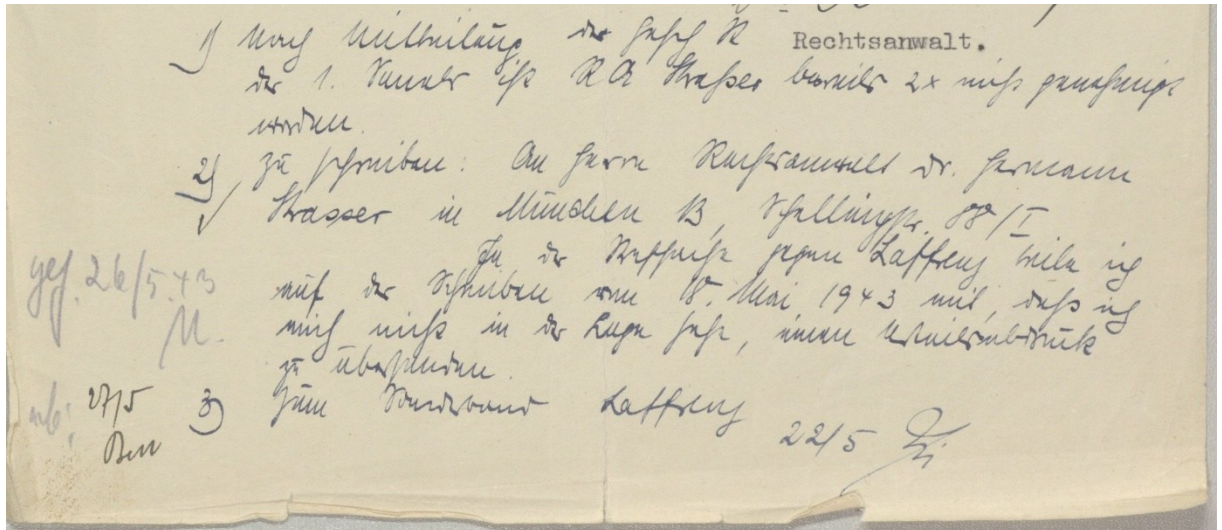 Rechtsanwalt.
1) Nach Mitteilung der Gesch St
des 1. Senats ist RA Straßer bereits 2x nicht genehmigt
worden.
2) zu schreiben: An Herrn Rechtsanwalt Dr. Hermann
Strasser in München 13, Schellingstr. 88/I
In der Strafsache gegen Laffrenz teile ich
auf das Schreiben vom 18. Mai 1943 mit, daß ich
mich nicht in der Lage sehe, einen Urteilsabdruck
zu übersenden.
3) Zum Sonderband Laffrenz
22/5
gef. 26/5.43
M.
ab:
27/5